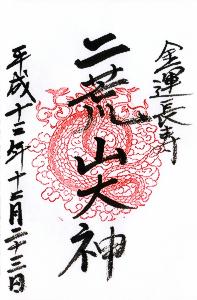 金運長寿
二荒山大神
平成十二年十二月二十三日